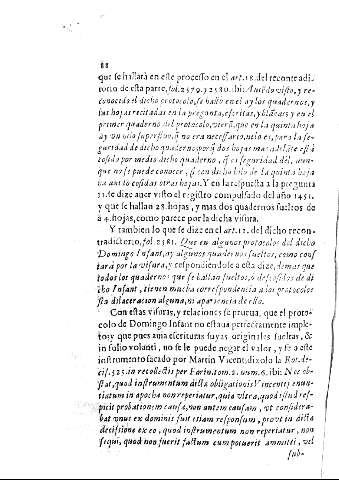 88
que se hallarà en este processo en el art.18. del recontradi-
torio de esta parte, fol.2579. y 2580. ibi: Auiẽdo visto, y re-
conocido el dicho protocolo, se hallò en el ay los quadernos, y
sus hojas recitadas en la pregunta, escritas, y blãcas y en el
primer quaderno del protocolo, vierõ, que en la quinta hoja
ay vn otulo superfluo, q̃ no era necessario, ni lo es, para la se-
guridad de dicho quaderno porq̃ dos hojas mas adelãte està
cosido por medio dicho quaderno, q̃ es seguridad dèl, aun-
que no se puede conocer, si con dicho de la quinta hoja
auia cosidas otras hojas. Y en la respuesta a la pregunta
11. se dize auer visto el registro compulsado del año 1451.
y que se hallan 28. hojas, y mas dos quadernos sueltos de
à 4. hojas, como parece por la dicha visura.
Y tambien lo que se dize en el art.12. del dicho recon-
tradictorio, fol.2581. Que en algunos protocolos del dicho
Domingo Infant, ay algunos quadernos sueltos, como cons-
tarà por la visura, y respondiendole a esta dize, demas que
todos los quadernos que se hallan sueltos, ò descosidos de di-
cho Infant, tienen mucha correspondencia a los protocolos
sin dilaceracion alguna, ni aparencia de ella.
Con estas visuras, y relaciones se prueua, que el proto-
colo de Domingo Infant no estaua perfectamente imple-
to, y que pues ania escrituras suyas originales sueltas, &
in folio volanti, no se le puede negar el valor, y fè a este
instrumento sacado por Martin Vicent, dixolo la Rot. de-
cis.525. in recollectis per Farin. tom.2. num.6. ibi: Nec ob-
stat, quod instrumentum dictæ obligationis Vincentij enun-
tiatum in apocha non reperiatur, quia vltra, quod istud res-
picit probationem causæ, non autem causam, vt considera-
bat vnus ex dominis fuit etiam responsum, prout in dicta
decisione ex eo, quod instrumentum non reperiatur, non
sequi, quod non fuerit factum cum potuerit ammitti, vel
sub-